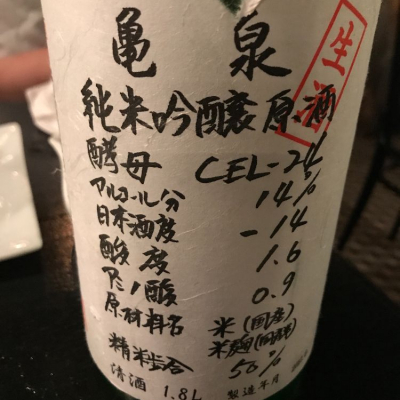 亀泉
純米吟醸原酒
生酒
酵母 CEL-24
アルコール分 14%
日本酒度 -14
酸度 1.6
アミノ酸 0.9
原材料名 米(国産)
米麹(国産米)
精米歩合 50%
清酒 1.8L 製造年月